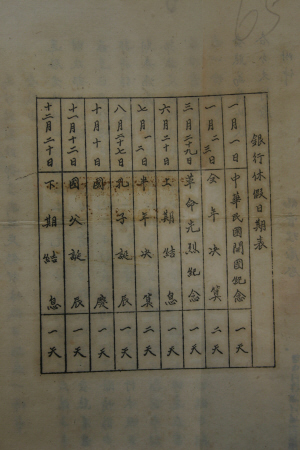 銀行休假日期表
一月一日 中華民國開國紀念 一天
一月二、三日 全年决算 二天
三月二十九日 革命先烈紀念 一天
六月二十日 上期結息 一天
七月一、二日 半年决算 二天
八月二十七日 孔子誕辰 一天
十月十日 國慶 一天
十一月十二日 國父誕辰 一天
十二月二十日 下期結息 一天